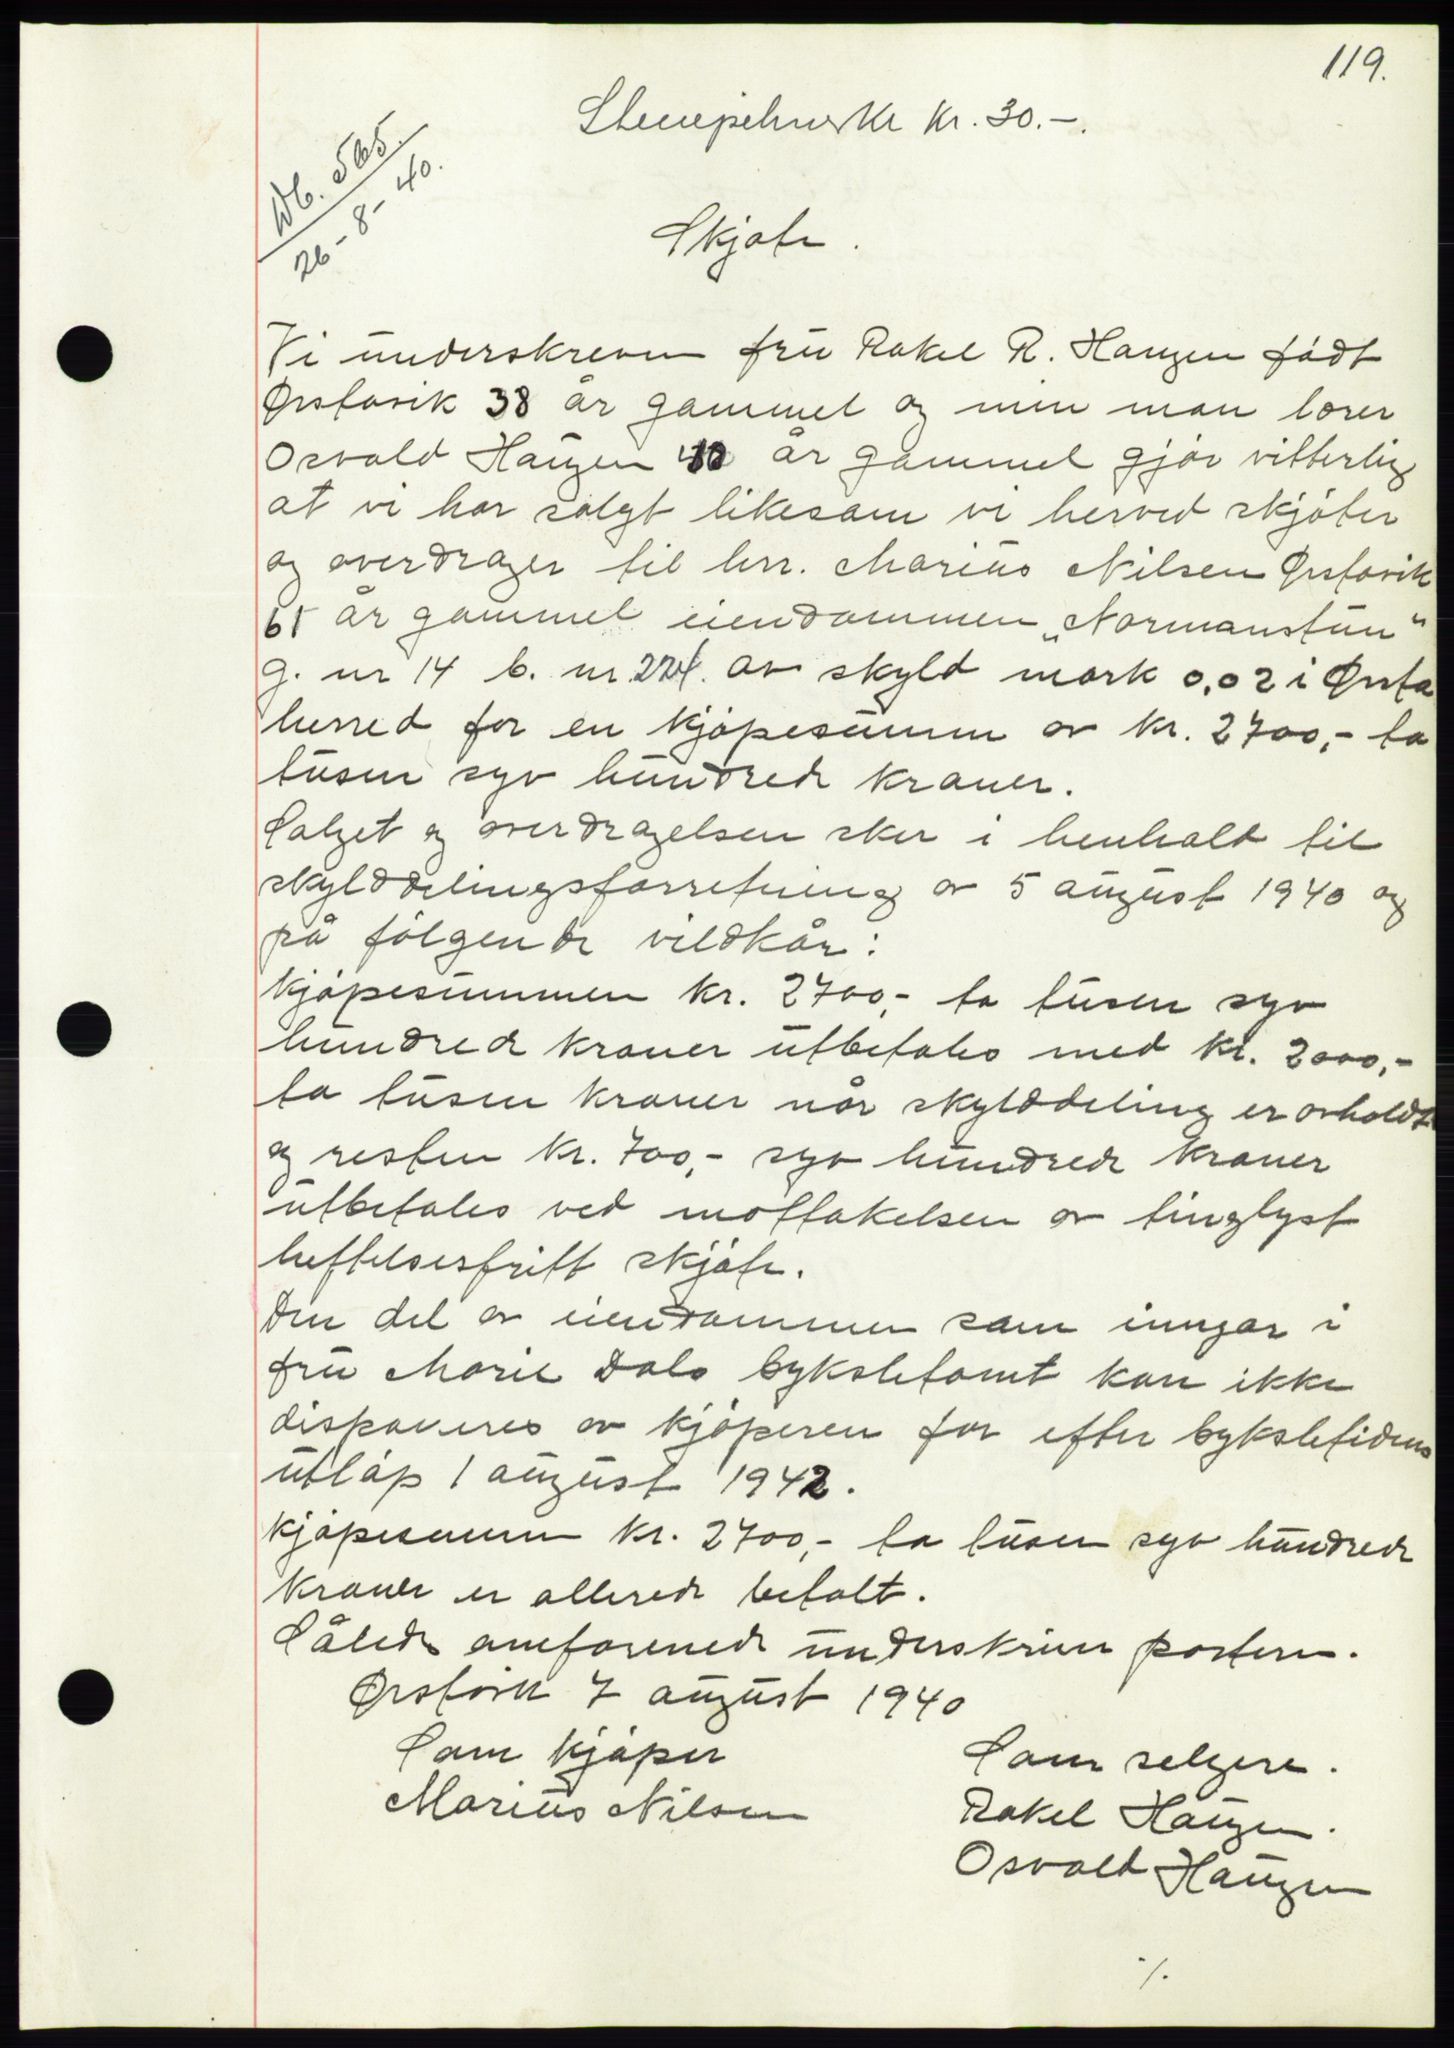 119.
Stempelmerke Kr. 30.-.
Db. 565.
26-8-40.
Skjøte.
Vi underskrevne fru Rakel R. Haugen født
Ørstavik 38 år gammel og min man lærer
Osvald Haugen år gammel gjør vitterlig
at vi har solgt likesom vi herved skjøter
og overdrager til hrr. Marius Nilsen Ørstavik
65 år gammel eiendommen „Normanstun"
g. nr 14 b. nr. 224. av skyld mark 0,02 i Ørsta
herred for en kjøpesumm av kr. 2700,- to
tusen syv hundrede kroner.
Salget og overdragelsen sker i henhold til
skylddelingsforretning av 5 august 1940 og
på følgende vildkår:
Kjøpesummen kr. 2700,- to tusen syv
hundrede kroner utbetales med kr. 2000,-
to tusen kroner når skylddeling er avholdt
og resten kr. 700,- syv hundrede kroner
utbetales ved mottakelsen av tinglyst
heftelsesfritt skjøte.
Den del av eiendommen som inngår i
fru Marie Dals bykseltomt kan ikke
disponeres av kjøperen før efter bykseltidens
utløp 1 august 1942.
Kjøpesumm kr. 2700,- to tusen syv hundrede
kroner er allerede betalt.
Således omforenede underskriver partene.
Ørstavik 7 august 1940
Som kjøper
Marius Nilsen
Som selgere.
Rakel Haugen.
Osvald Haugen
./.